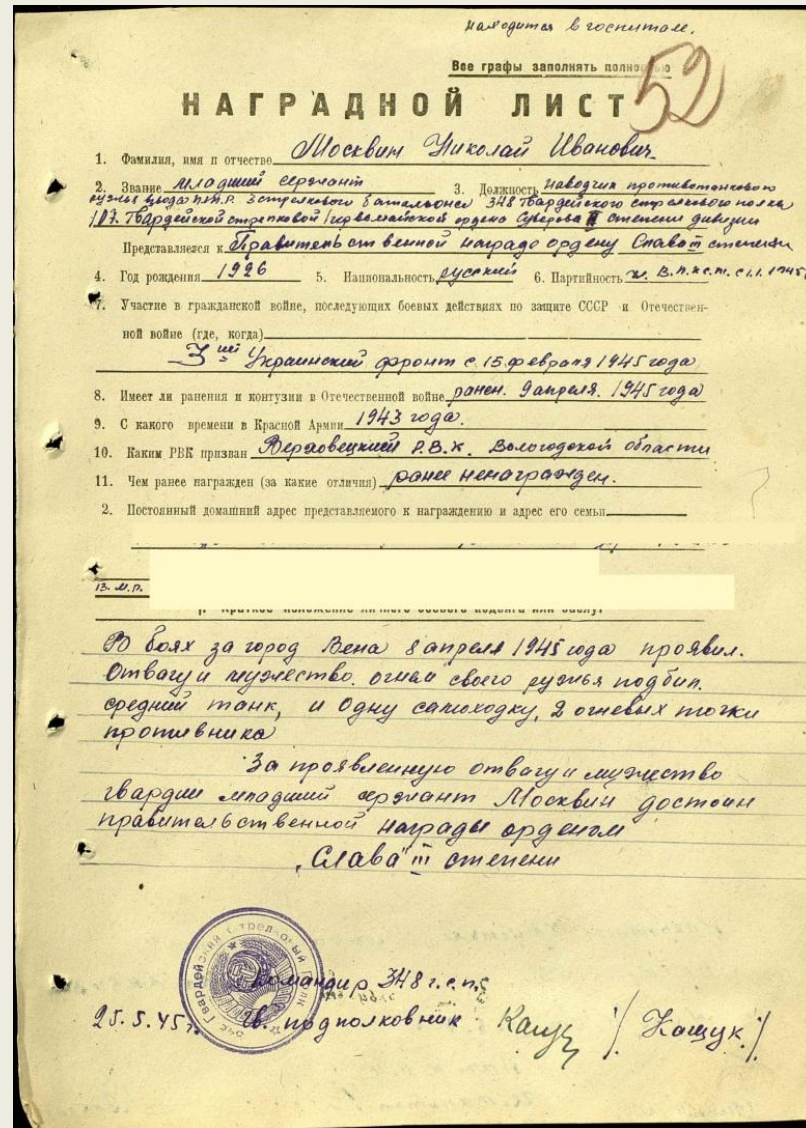 находится в госпитале.
Все графы заполнять полностью
52
НАГРАДНОЙ ЛИСТ
1. Фамилия, имя и отчество Москвин Николай Иванович
2. Звание младший сержант 3. Должность наводчик противотанкового
ружья взвода П.Т.Р. 3 стрелкового батальона 348 Гвардейского стрелкового полка
107 Гвардейской стрелковой Первомайской ордена Суворова II степени дивизии
Представляется к Правительственной награде ордену Слава III степени
4. Год рождения 1926 5. Национальность русский 6. Партийность В.Л.К.С.М. с 1.1.1945
7. Участие в гражданской войне, последующих боевых действиях по защите СССР и Отечествен-
ной войне (где, когда)
3ий Украинский фронт с 15 февраля 1945 года
8. Имеет ли ранения и контузии в Отечественной войне ранен. 9 апреля. 1945 года
9. С какого времени в Красной Армии 1943 года.
10. Каким РВК призван Верховецким Р.В.К. Вологодской области
11. Чем ранее награжден (за какие отличия) ранее ненагражден.
2. Постоянный домашний адрес представляемого к награждению и адрес его семьи
13. М.П.
I. Краткое изложение личного боевого подвига или заслуг
В боях за город Вена 8 апреля 1945 года проявил.
Отвагу и мужество. огнем своего ружья подбил.
средний танк, и одну самоходку, 2 огневых точки
противника
За проявленную отвагу и мужество
гвардии младший сержант Москвин достоин
правительственной награды орденом
"Слава" III степени
Гвардейский стрелковый полк
Командир 348 г.с.п.
25.5.45г. Гв. подполковник Кащук /Кащук/